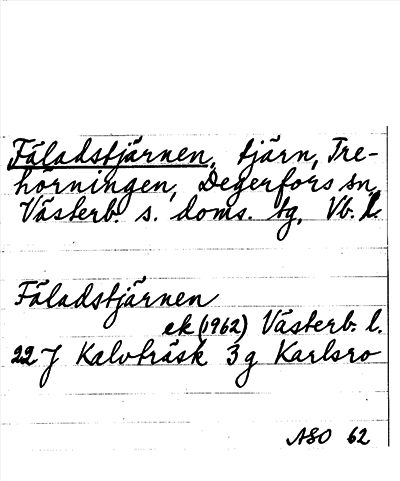 Fäladstjärnen, tjärn, Tre-
hörningen, Degerfors sn,
Västerb. s. doms. tg, Vb. l.
Fäladstjärnen
ek (1962) Västerb. l.
22 J Kalvträsk 3 g Karlsro
ASO 62